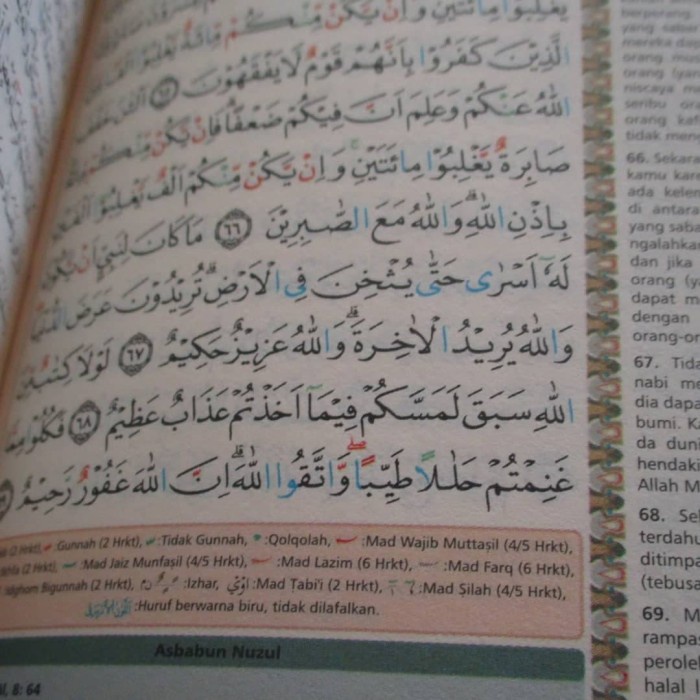 يَغْلِبُوْا مِائَتَيْنِۚ وَاِنْ يَّكُنْ مِّنْكُمْ مِّائَةٌ يَّغْلِبُوْٓا اَلْفًا
الَّذِيْنَ كَفَرُوْا بِاَنَّهُمْ قَوْمٌ لَّا يَفْقَهُوْنَ ٦٥ اَلْـٰٔنَ خَفَّفَ
اللّٰهُ عَنْكُمْ وَعَلِمَ اَنَّ فِيْكُمْ ضَعْفًاۗ فَاِنْ يَّكُنْ مِّنْكُمْ
صَابِرَةٌ يَّغْلِبُوْا مِائَتَيْنِۚ وَاِنْ يَّكُنْ مِّنْكُمْ اَلْفٌ يَّغْلِبُوْٓا اَلْفَيْنِ
بِاِذْنِ اللّٰهِۗ وَاللّٰهُ مَعَ الصّٰبِرِيْنَ ٦٦ مَا كَانَ لِنَبِيٍّ اَنْ يَّكُوْنَ
لَهٗٓ اَسْرٰى حَتّٰى يُثْخِنَ فِى الْاَرْضِۗ تُرِيْدُوْنَ عَرَضَ الدُّنْيَا
وَاللّٰهُ يُرِيْدُ الْاٰخِرَةَۗ وَاللّٰهُ عَزِيْزٌ حَكِيْمٌ ٦٧ لَوْلَا كِتٰبٌ مِّنَ
اللّٰهِ سَبَقَ لَمَسَّكُمْ فِيْمَآ اَخَذْتُمْ عَذَابٌ عَظِيْمٌ ٦٨ فَكُلُوْا مِمَّا
غَنِمْتُمْ حَلٰلًا طَيِّبًاۖ وَّاتَّقُوا اللّٰهَۗ اِنَّ اللّٰهَ غَفُوْرٌ رَّحِيْمٌ
(2 Hrkt), :Gunnah (2 Hrkt), :Tidak Gunnah, :Qolqolah, :Mad Wajib Muttaṣil (4/5 Hrkt),
(2 Hrkt), :Mad Jaiz Munfaṣil (4/5 Hrkt), :Mad Lazim (6 Hrkt), :Mad Farq (6 Hrkt),
Bigunnah (2 Hrkt), :Izhar, :Mad Ṭabi'i (2 Hrkt), :Mad Ṣilah (4/5 Hrkt),
:Huruf berwarna biru, tidak dilafalkan.
Asbabun Nuzul
8: 64
berperang
yang saba
mereka da
orang mus
orang (ya
niscaya m
seribu or
orang kaf
tidak meng
66. Sekara
kamu kare
ada kelem
di antara
yang saba
ngalahkan
dan jika
orang (ya
dapat m
dengan
orang-or
67. Tida
nabi m
dia dapa
bumi. Ka
da duni
hendaki
Allah M
68. Sek
terdahu
ditimpa
(tebusa
69. M
rampas
peroleh
halal l